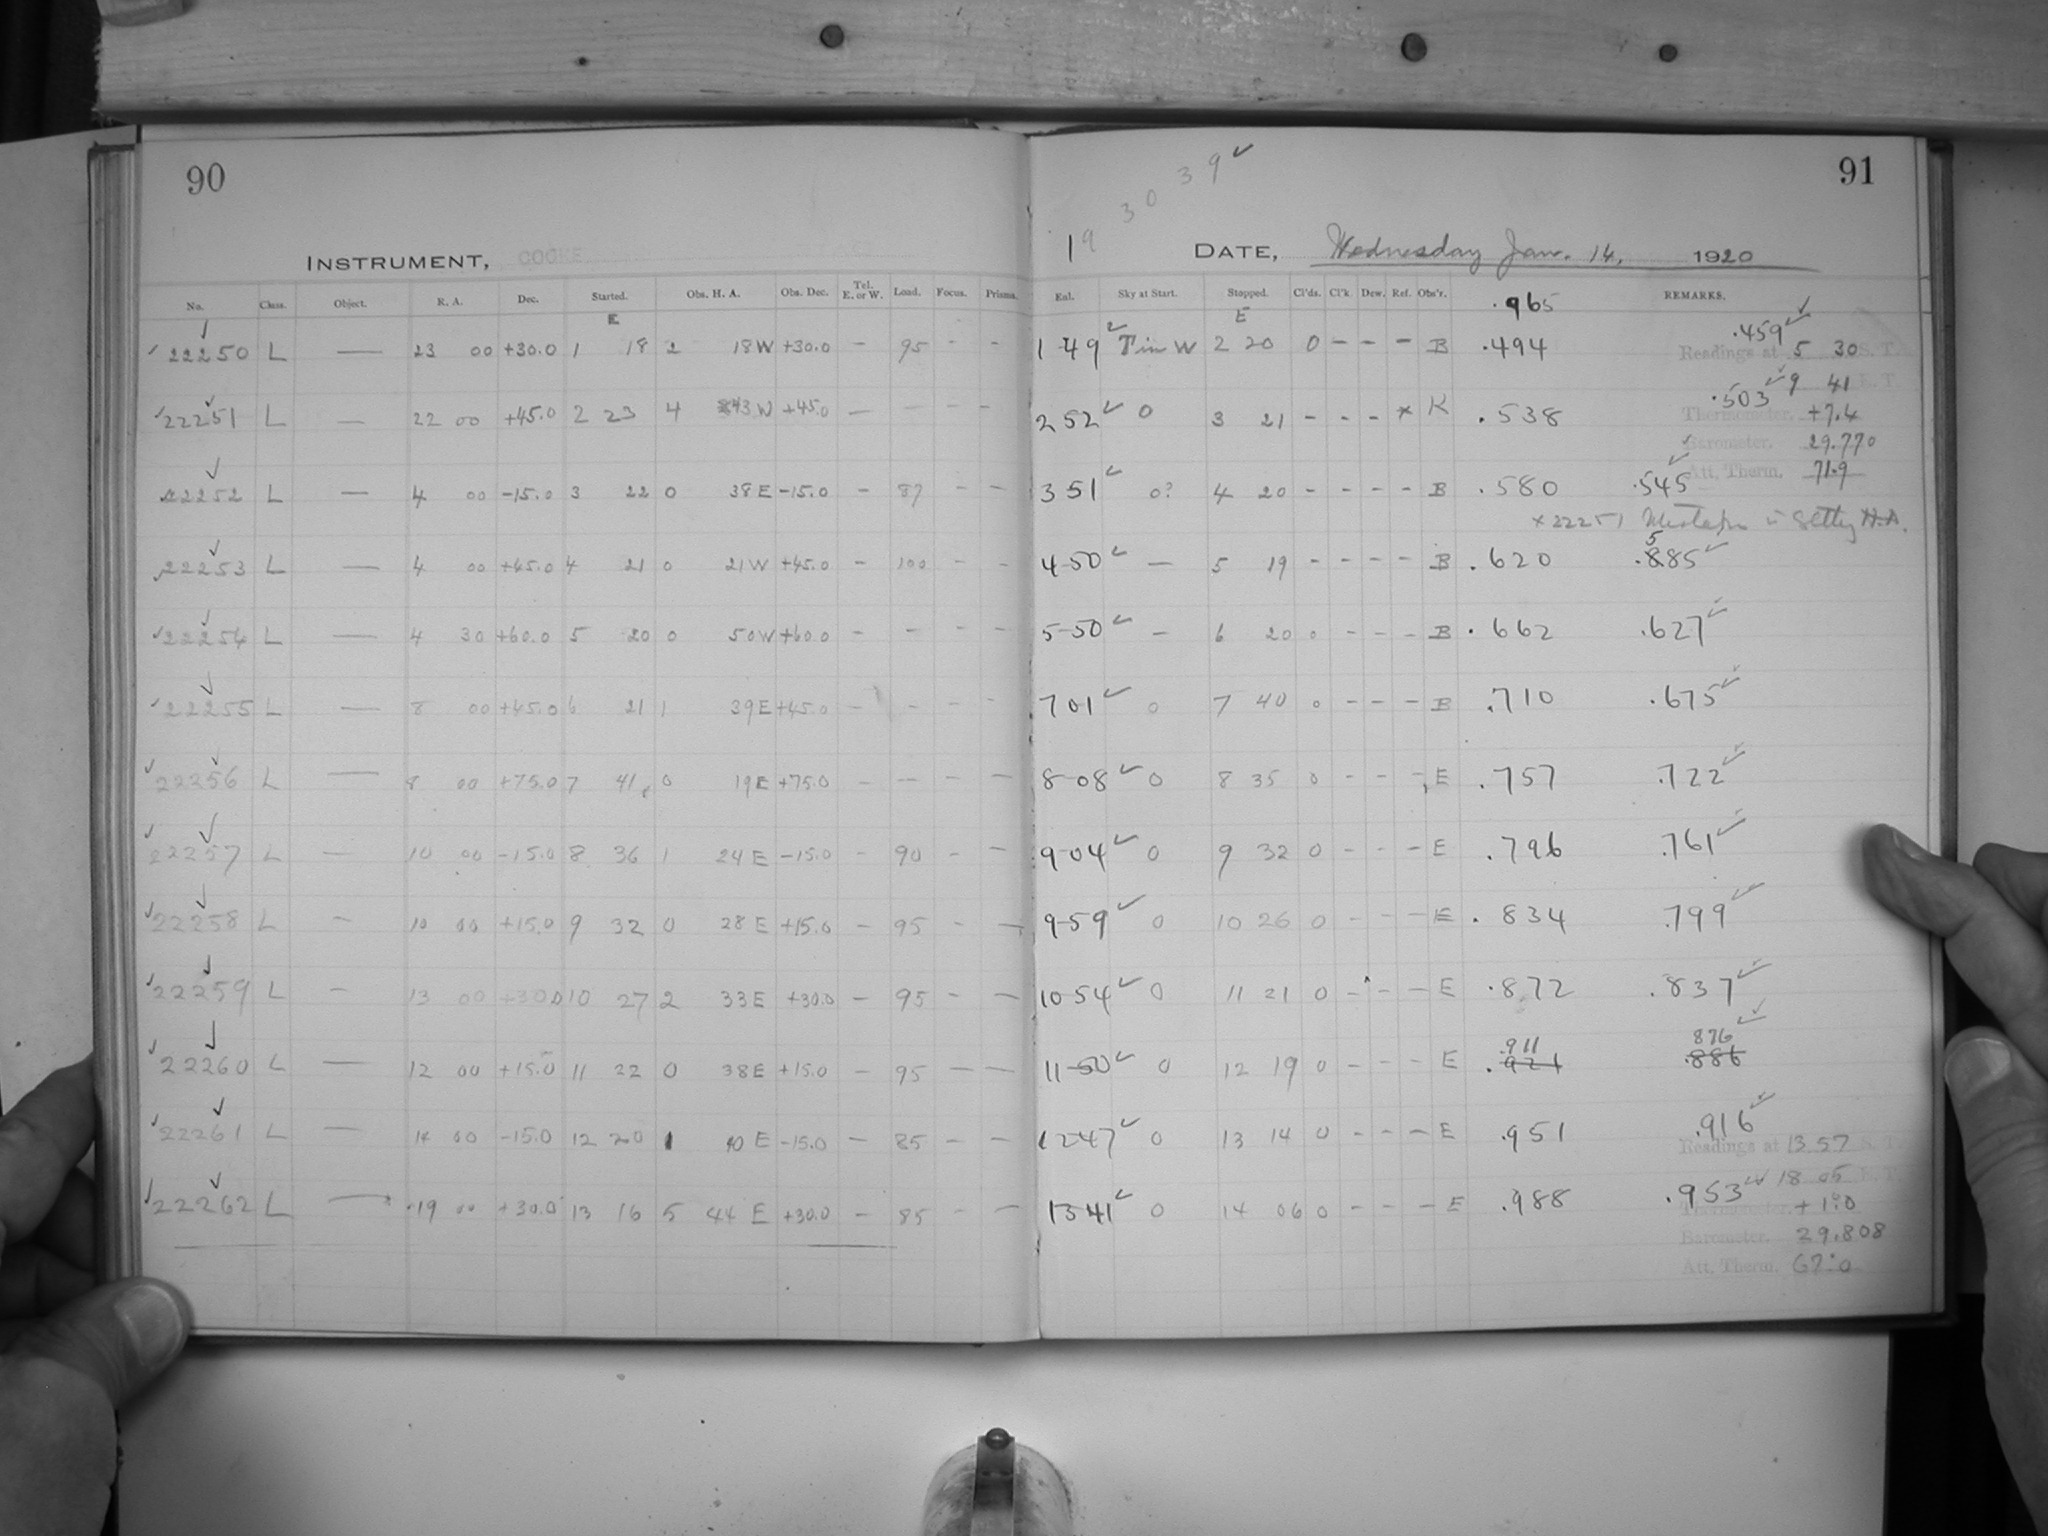 90
INSTRUMENT, COOKE
No. Class. Object. R. A. Dec. Started. Obs. H. A. Obs. Dec. Tel. E. or W. Load. Focus. Prisms.
E
22250 L — 23 00 +30.0 1 18 2 18 W +30.0 - 95 - -
22251 L — 22 00 +45.0 2 23 4 43 W +45.0 — - - -
22252 L — 4 00 -15.0 3 22 0 38 E -15.0 - 87 - -
22253 L — 4 00 +45.0 4 21 0 21 W +45.0 - 100 - -
22254 L — 4 30 +60.0 5 20 0 50 W +60.0 - - - -
22255 L — 8 00 +45.0 6 21 1 39 E +45.0 - - - -
22256 L — 8 00 +75.0 7 41 0 19 E +75.0 - - - -
22257 L — 10 00 -15.0 8 36 1 24 E -15.0 - 90 - -
22258 L - 10 00 +15.0 9 32 0 28 E +15.0 - 95 - -
22259 L - 13 00 +30.0 10 27 2 33 E +30.0 - 95 - -
22260 L — 12 00 +15.0 11 22 0 38 E +15.0 - 95 - -
22261 L — 14 00 -15.0 12 20 1 10 E -15.0 - 85 - -
22262 L — 19 00 +30.0 13 16 5 44 E +30.0 - 85 - -
91
19 30 39 ✓
DATE, Wednesday Jan. 14, 1920
Enl. Sky at Start. Stopped. Cl'ds. Cl'k. Dew. Ref. Obs'r. .965 REMARKS.
E
1-49 ✓ W 2 20 0 - - - B .494 .459 ✓
Readings at 5 30 S. T.
9 41 E. T.
2 52 ✓ 0 3 21 - - - × K .538 .503 ✓
Thermometer. +7.4
Barometer. 29.770
Att. Therm. 71.9
3 51 ✓ 0? 4 20 - - - - B .580 .545 ✓
× 22251 Mistake in setting H.A.
4-50 ✓ — 5 19 - - - - B .620 .585 ✓
5-50 ✓ — 6 20 0 - - - B .662 .627 ✓
7 01 ✓ 0 7 40 0 - - - B .710 .675 ✓
8-08 ✓ 0 8 35 0 - - - E .757 .722 ✓
9-04 ✓ 0 9 32 0 - - - E .796 .761 ✓
9-59 ✓ 0 10 26 0 - - - E .834 .799 ✓
10-54 ✓ 0 11 21 0 - - - E .872 .837 ✓
.911 876 ✓
11-50 ✓ 0 12 19 0 - - - E .921 .886
12 47 ✓ 0 13 14 0 - - - E .951 .916 ✓
Readings at 13 57 S. T.
18 05 E. T.
13 41 ✓ 0 14 06 0 - - - E .988 .953 ✓
Thermometer. +1.0
Barometer. 29.808
Att. Therm. 67.0